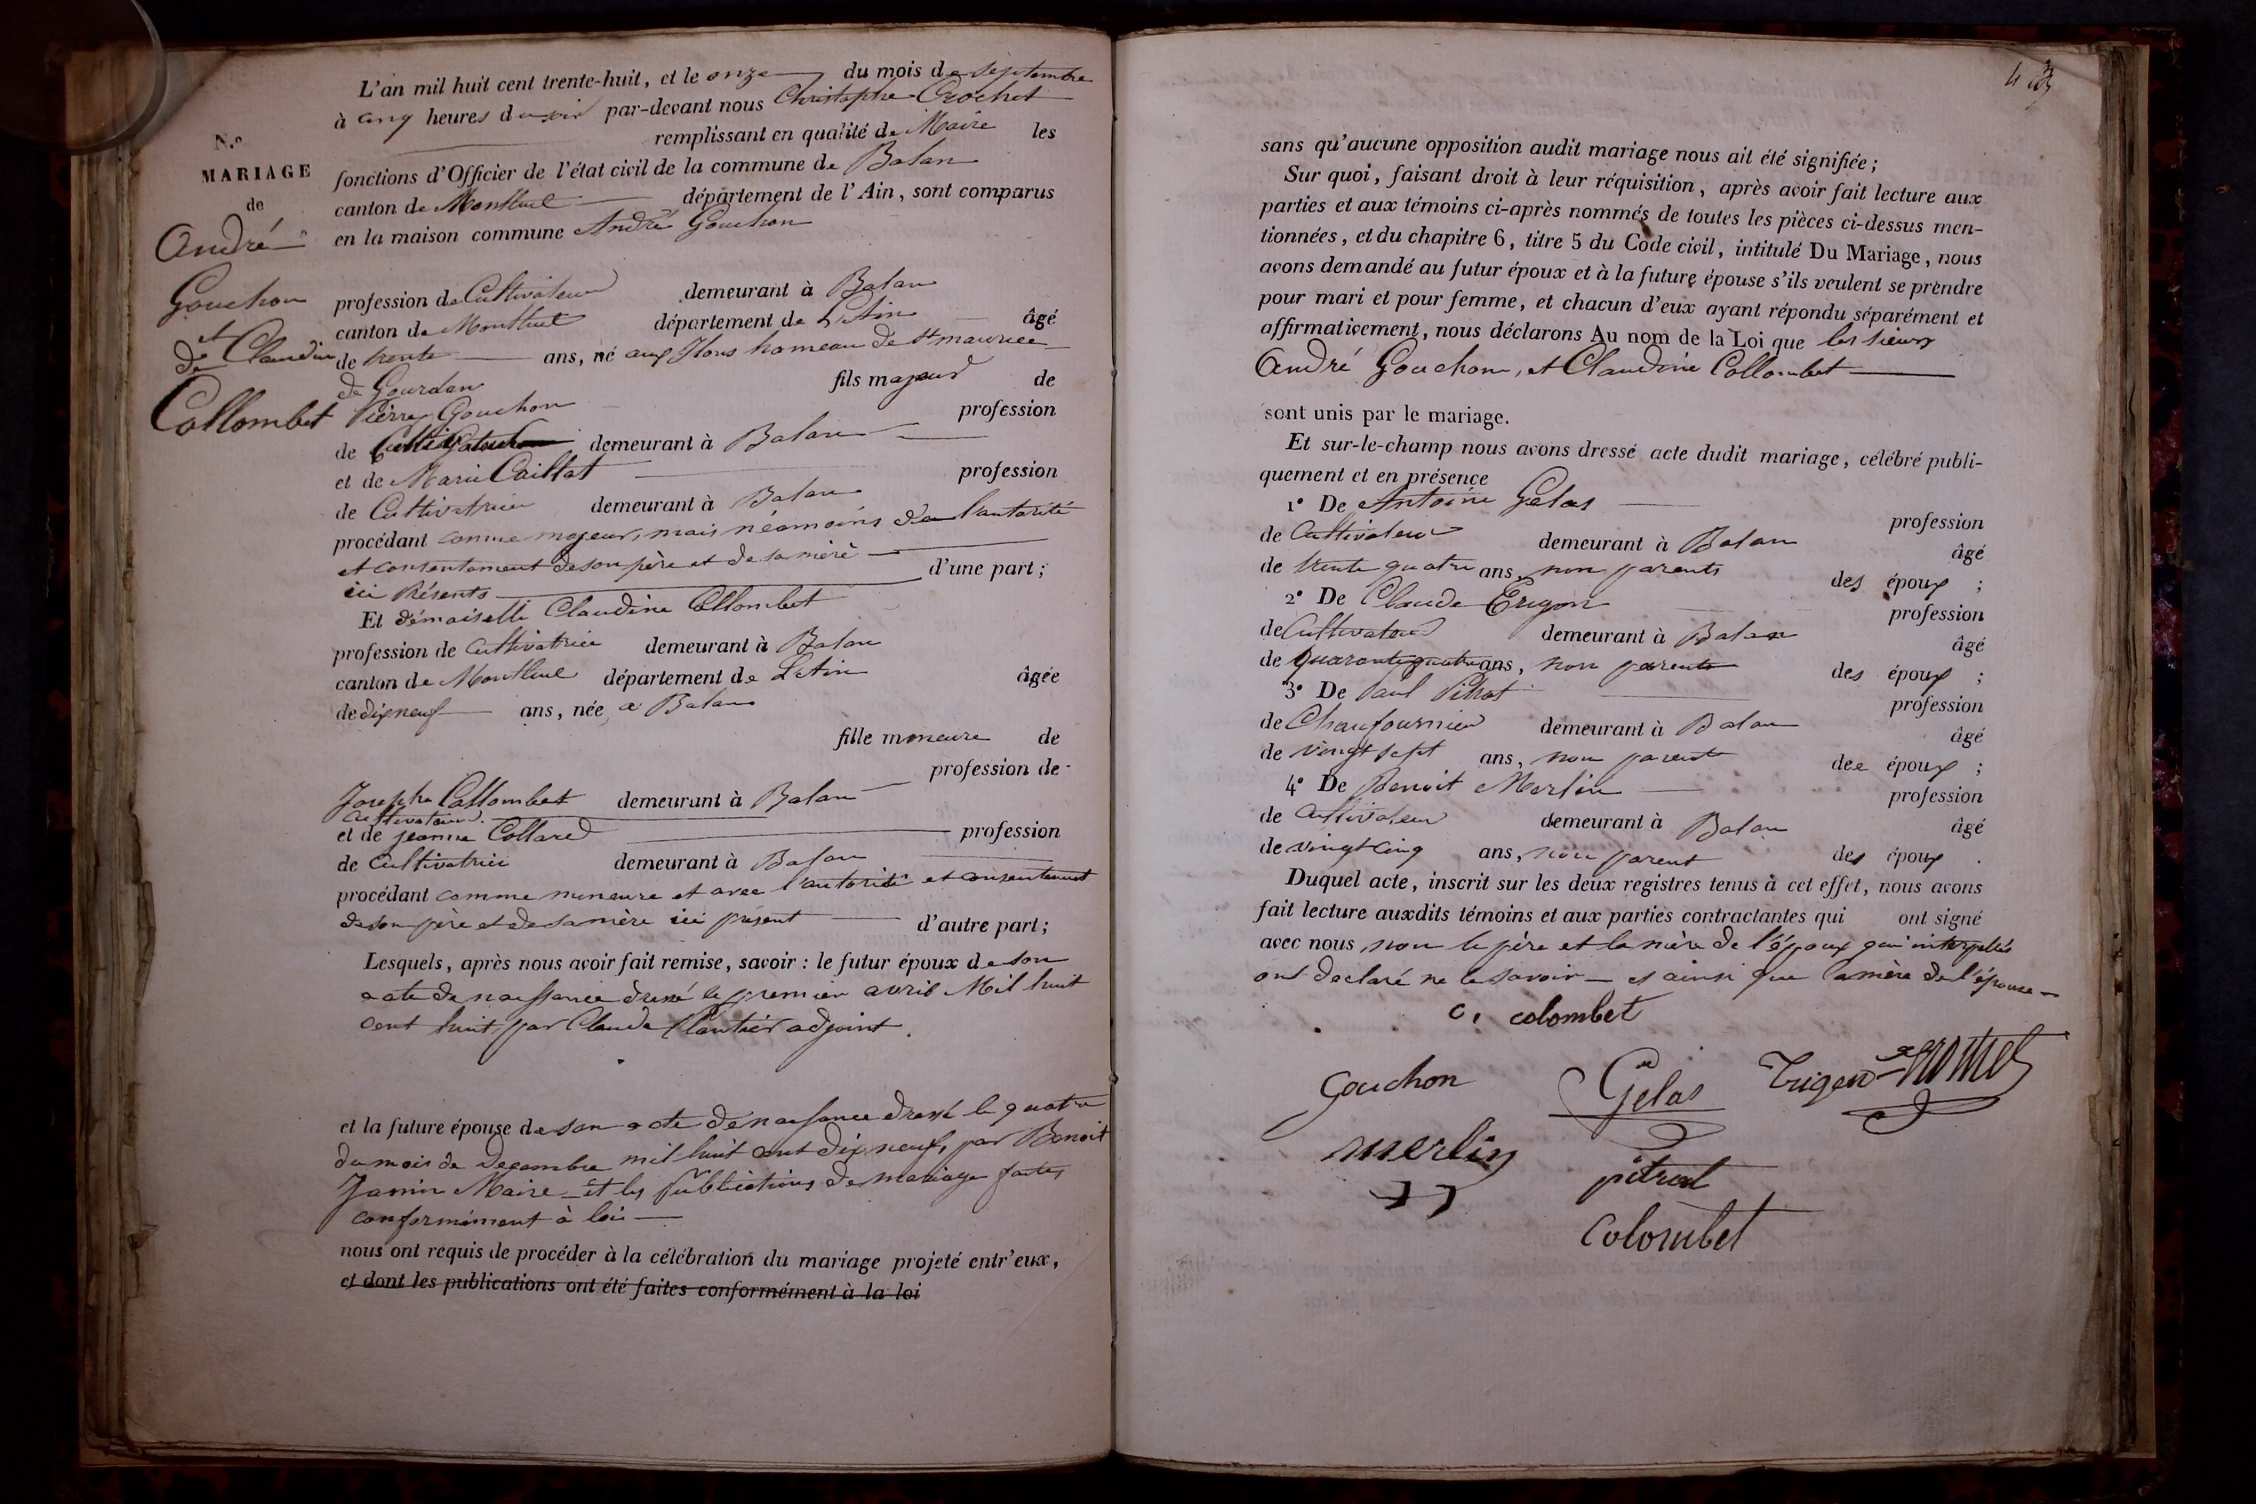 L'an mil huit cent trente-huit, et le onze du mois de septembre
à cinq heures du soir par-devant nous Christophe Crochet
remplissant en qualité de Maire les
fonctions d'Officier de l'état civil de la commune de Balan
canton de Montluel département de l'Ain, sont comparus
en la maison commune André Gouchon
N.º
MARIAGE
de
André
Gouchon
et
de Claudine
Collombet
profession de Cultivateur demeurant à Balan
canton de Montluel département de L'Ain âgé
de trente ans, né aux Ilons hameau de St maurice
de Gourdan fils majeur de
Pierre Gouchon profession
de Cultivateur demeurant à Balan
et de Marie Caillat profession
de Cultivatrice demeurant à Balan
procédant comme majeur, mais néamoins de l'autorité
et consentement de son père et de sa mère
ici Présents d'une part;
Et démoiselle Claudine Collombet
profession de Cultivatrice demeurant à Balan
canton de Montluel département de L'Ain âgée
de dix neuf ans, née a Balan
fille mineure de
profession de
Joseph Collombet demeurant à Balan
Cultivateur
et de jeanne Collard profession
de Cultivatrice demeurant à Balan
procédant comme mineure et avec l'autorité et consentement
de son père et de sa mère ici présent d'autre part;
Lesquels, après nous avoir fait remise, savoir : le futur époux de son
acte de naissance dressé le premier avril Mil huit
cent huit par Claude adjoint.
et la future épouse de son acte de naissance dressé le quatre
du mois de Decembre mil huit cent dix neuf, par Benoit
Janin Maire et les publications de mariage faites
conformément à loi
nous ont requis de procéder à la célébration du mariage projeté entr'eux,
et dont les publications ont été faites conformément à la loi
sans qu'aucune opposition audit mariage nous ait été signifiée;
Sur quoi, faisant droit à leur réquisition, après avoir fait lecture aux
parties et aux témoins ci-après nommés de toutes les pièces ci-dessus men-
tionnées, et du chapitre 6, titre 5 du Code civil, intitulé Du Mariage, nous
avons demandé au futur époux et à la future épouse s'ils veulent se prendre
pour mari et pour femme, et chacun d'eux ayant répondu séparément et
affirmativement, nous déclarons Au nom de la Loi que les sieurs
André Gouchon, et Claudine Collombet
sont unis par le mariage.
Et sur-le-champ nous avons dressé acte dudit mariage, célébré publi-
quement et en présence
1º De Antoine Gelas profession
de Cultivateur demeurant à Balan âgé
de trente quatre ans, non parents des époux ;
2º De Claude Trigon profession
de Cultivateur demeurant à Balan âgé
de quarante quatre ans, non parents des époux ;
3º De Paul Pitrat profession
de Chaufournier demeurant à Balan âgé
de vingt sept ans, non parent des époux ;
4º De Benoit Merlin profession
de Cultivateur demeurant à Balan âgé
de vingt cinq ans, non parent des époux .
Duquel acte, inscrit sur les deux registres tenus à cet effet, nous avons
fait lecture auxdits témoins et aux parties contractantes qui ont signé
avec nous non le père et la mère de l'époux qui interpellés
ont declaré ne le savoir et ainsi que la mère de l'épouse
c. colombet
Gouchon Gelas Trigon
merlin
pitrat
Colombet